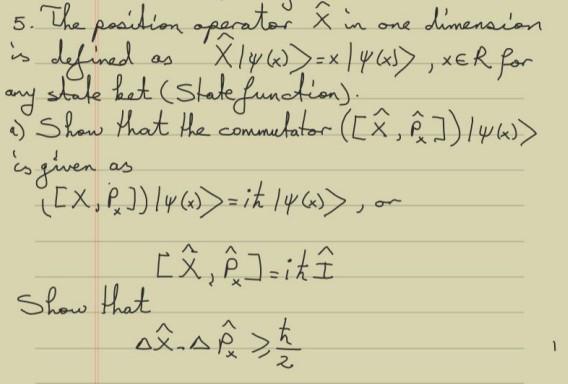 5. The position operator X̂ in one dimension
is defined as X̂|ψ(x)>=x|ψ(x)>, x∈R for
any state ket (State function).
a) Show that the commutator ([X̂, P̂ₓ])|ψ(x)>
is given as
([X, Pₓ])|ψ(x)>=iħ|ψ(x)>, or
[X̂, P̂ₓ]=iħÎ
Show that
ΔX̂.ΔP̂ₓ ≥ ħ/2
1